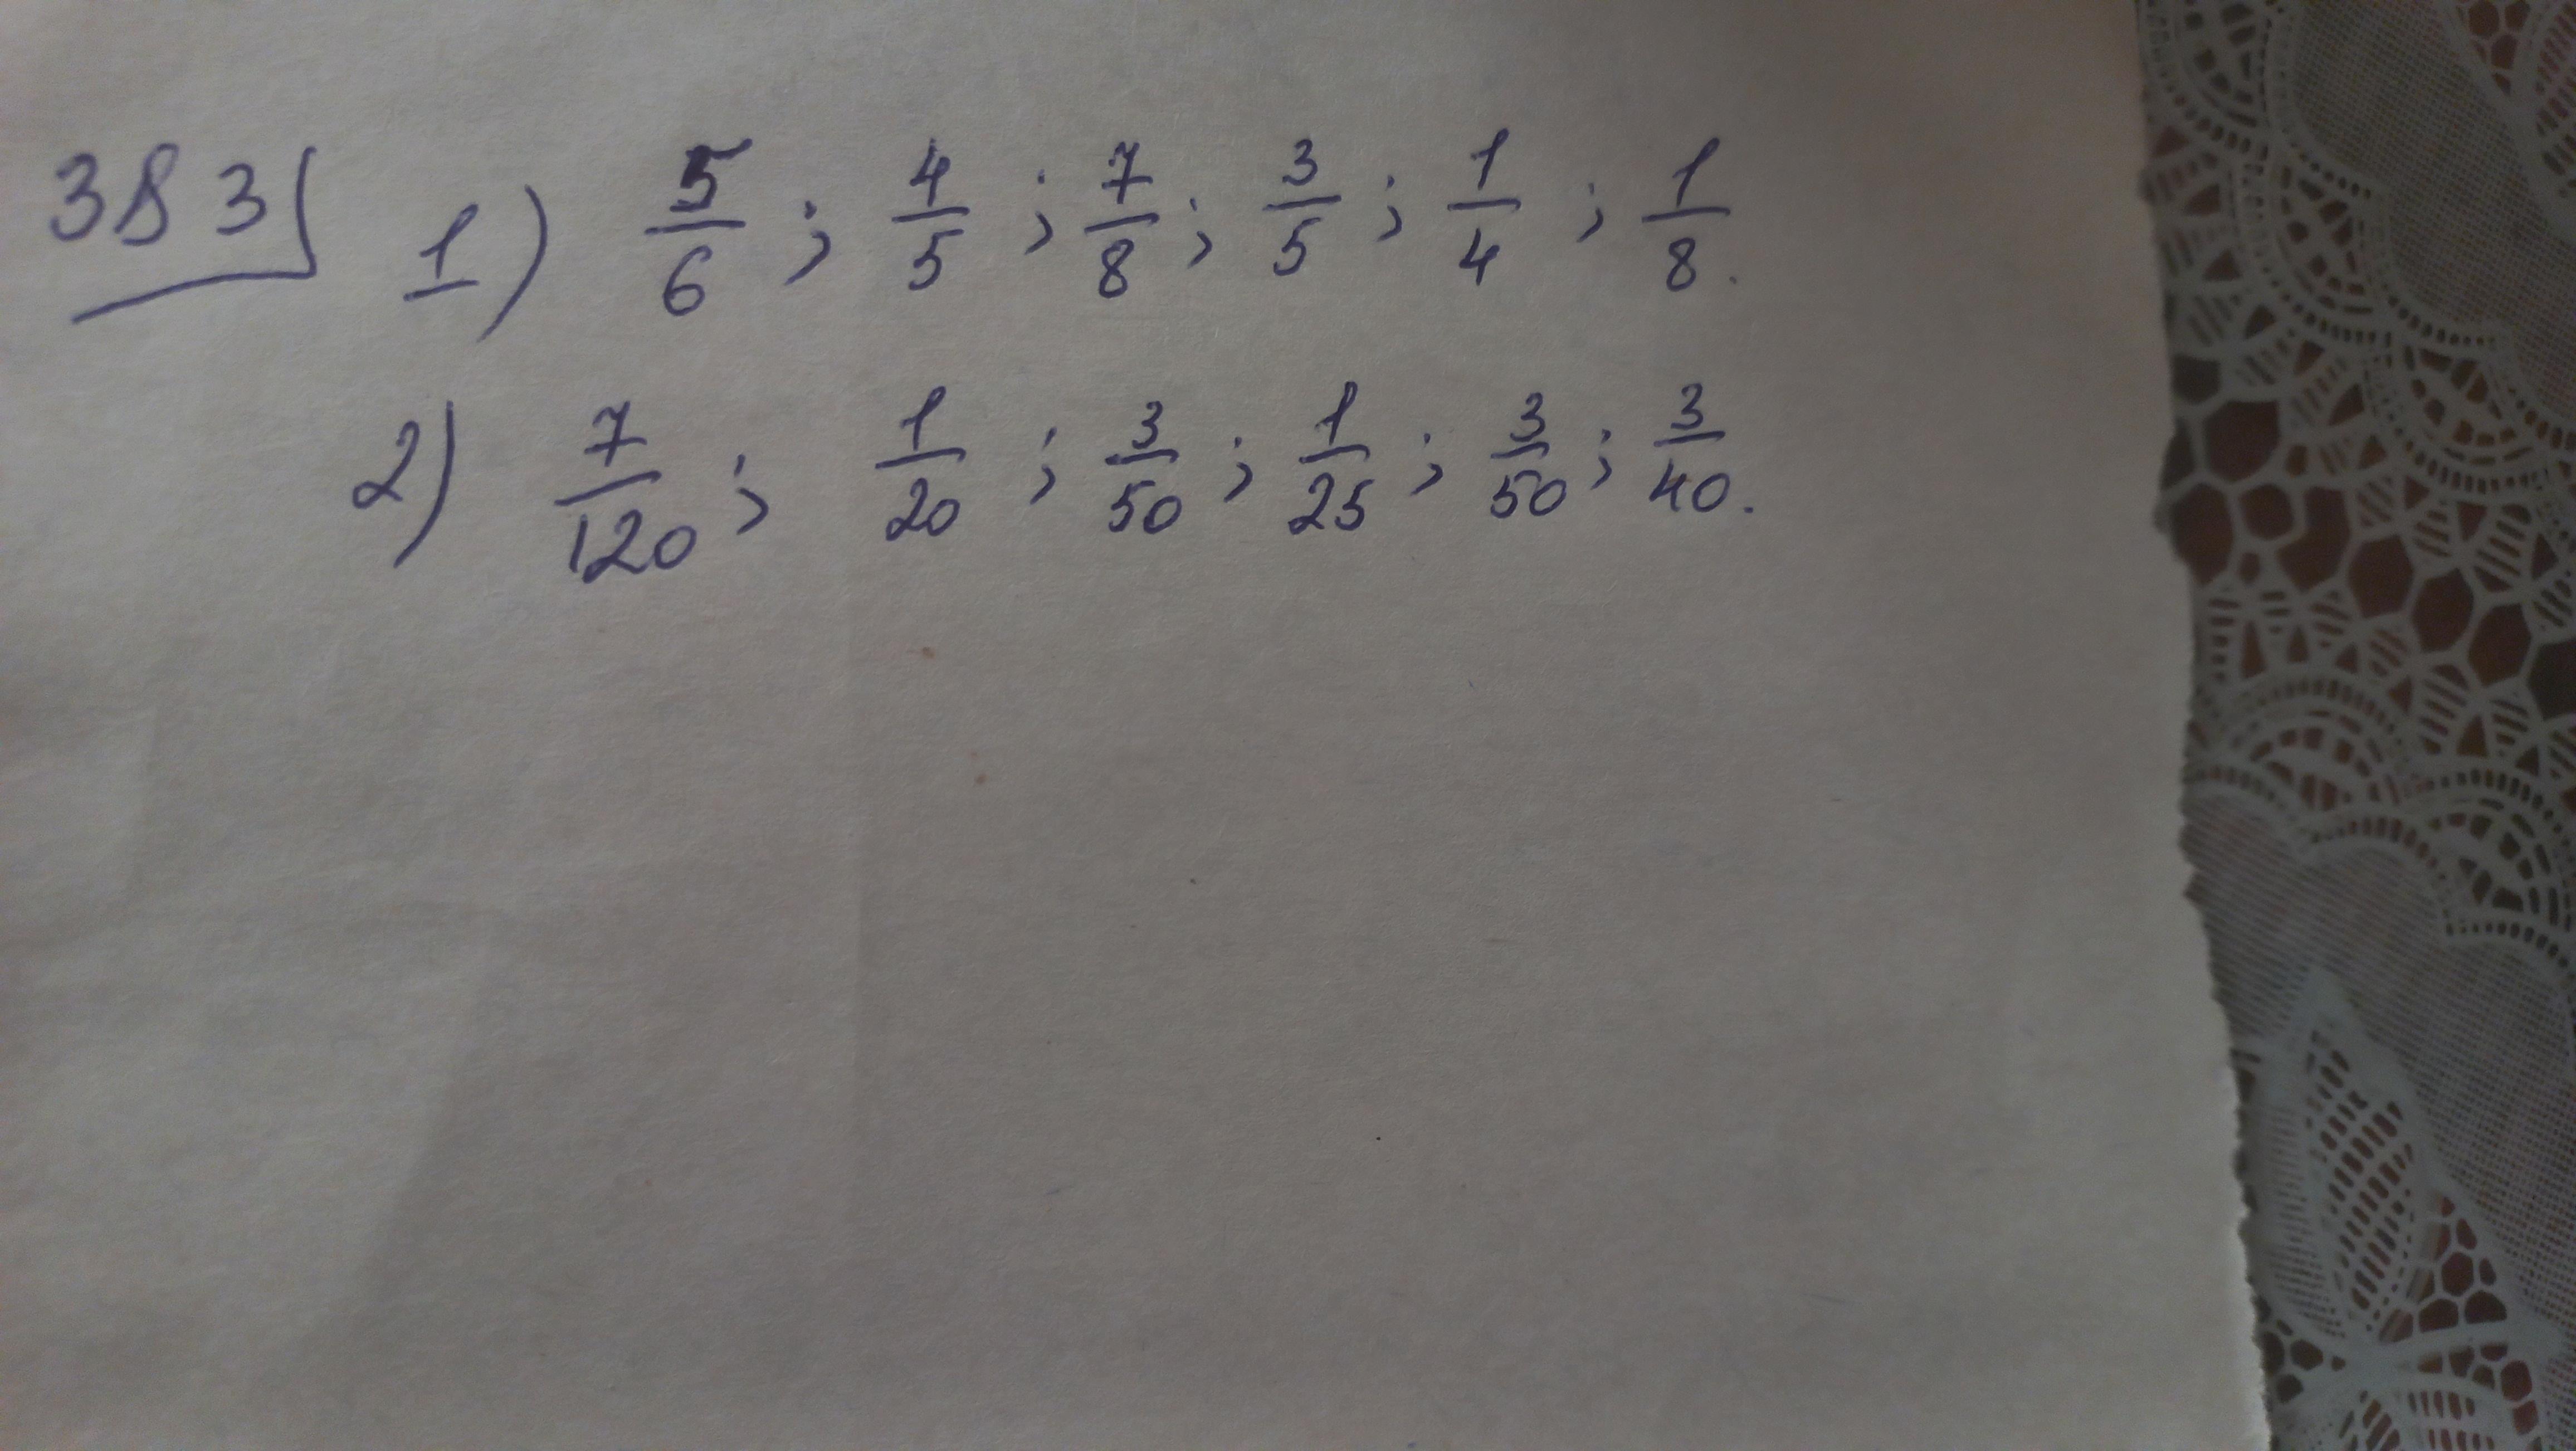 383 1) 5/6 ; 4/5 ; 7/8 ; 3/5 ; 1/4 ; 1/8.
2) 7/120 ; 1/20 ; 3/50 ; 1/25 ; 3/50 ; 3/40.